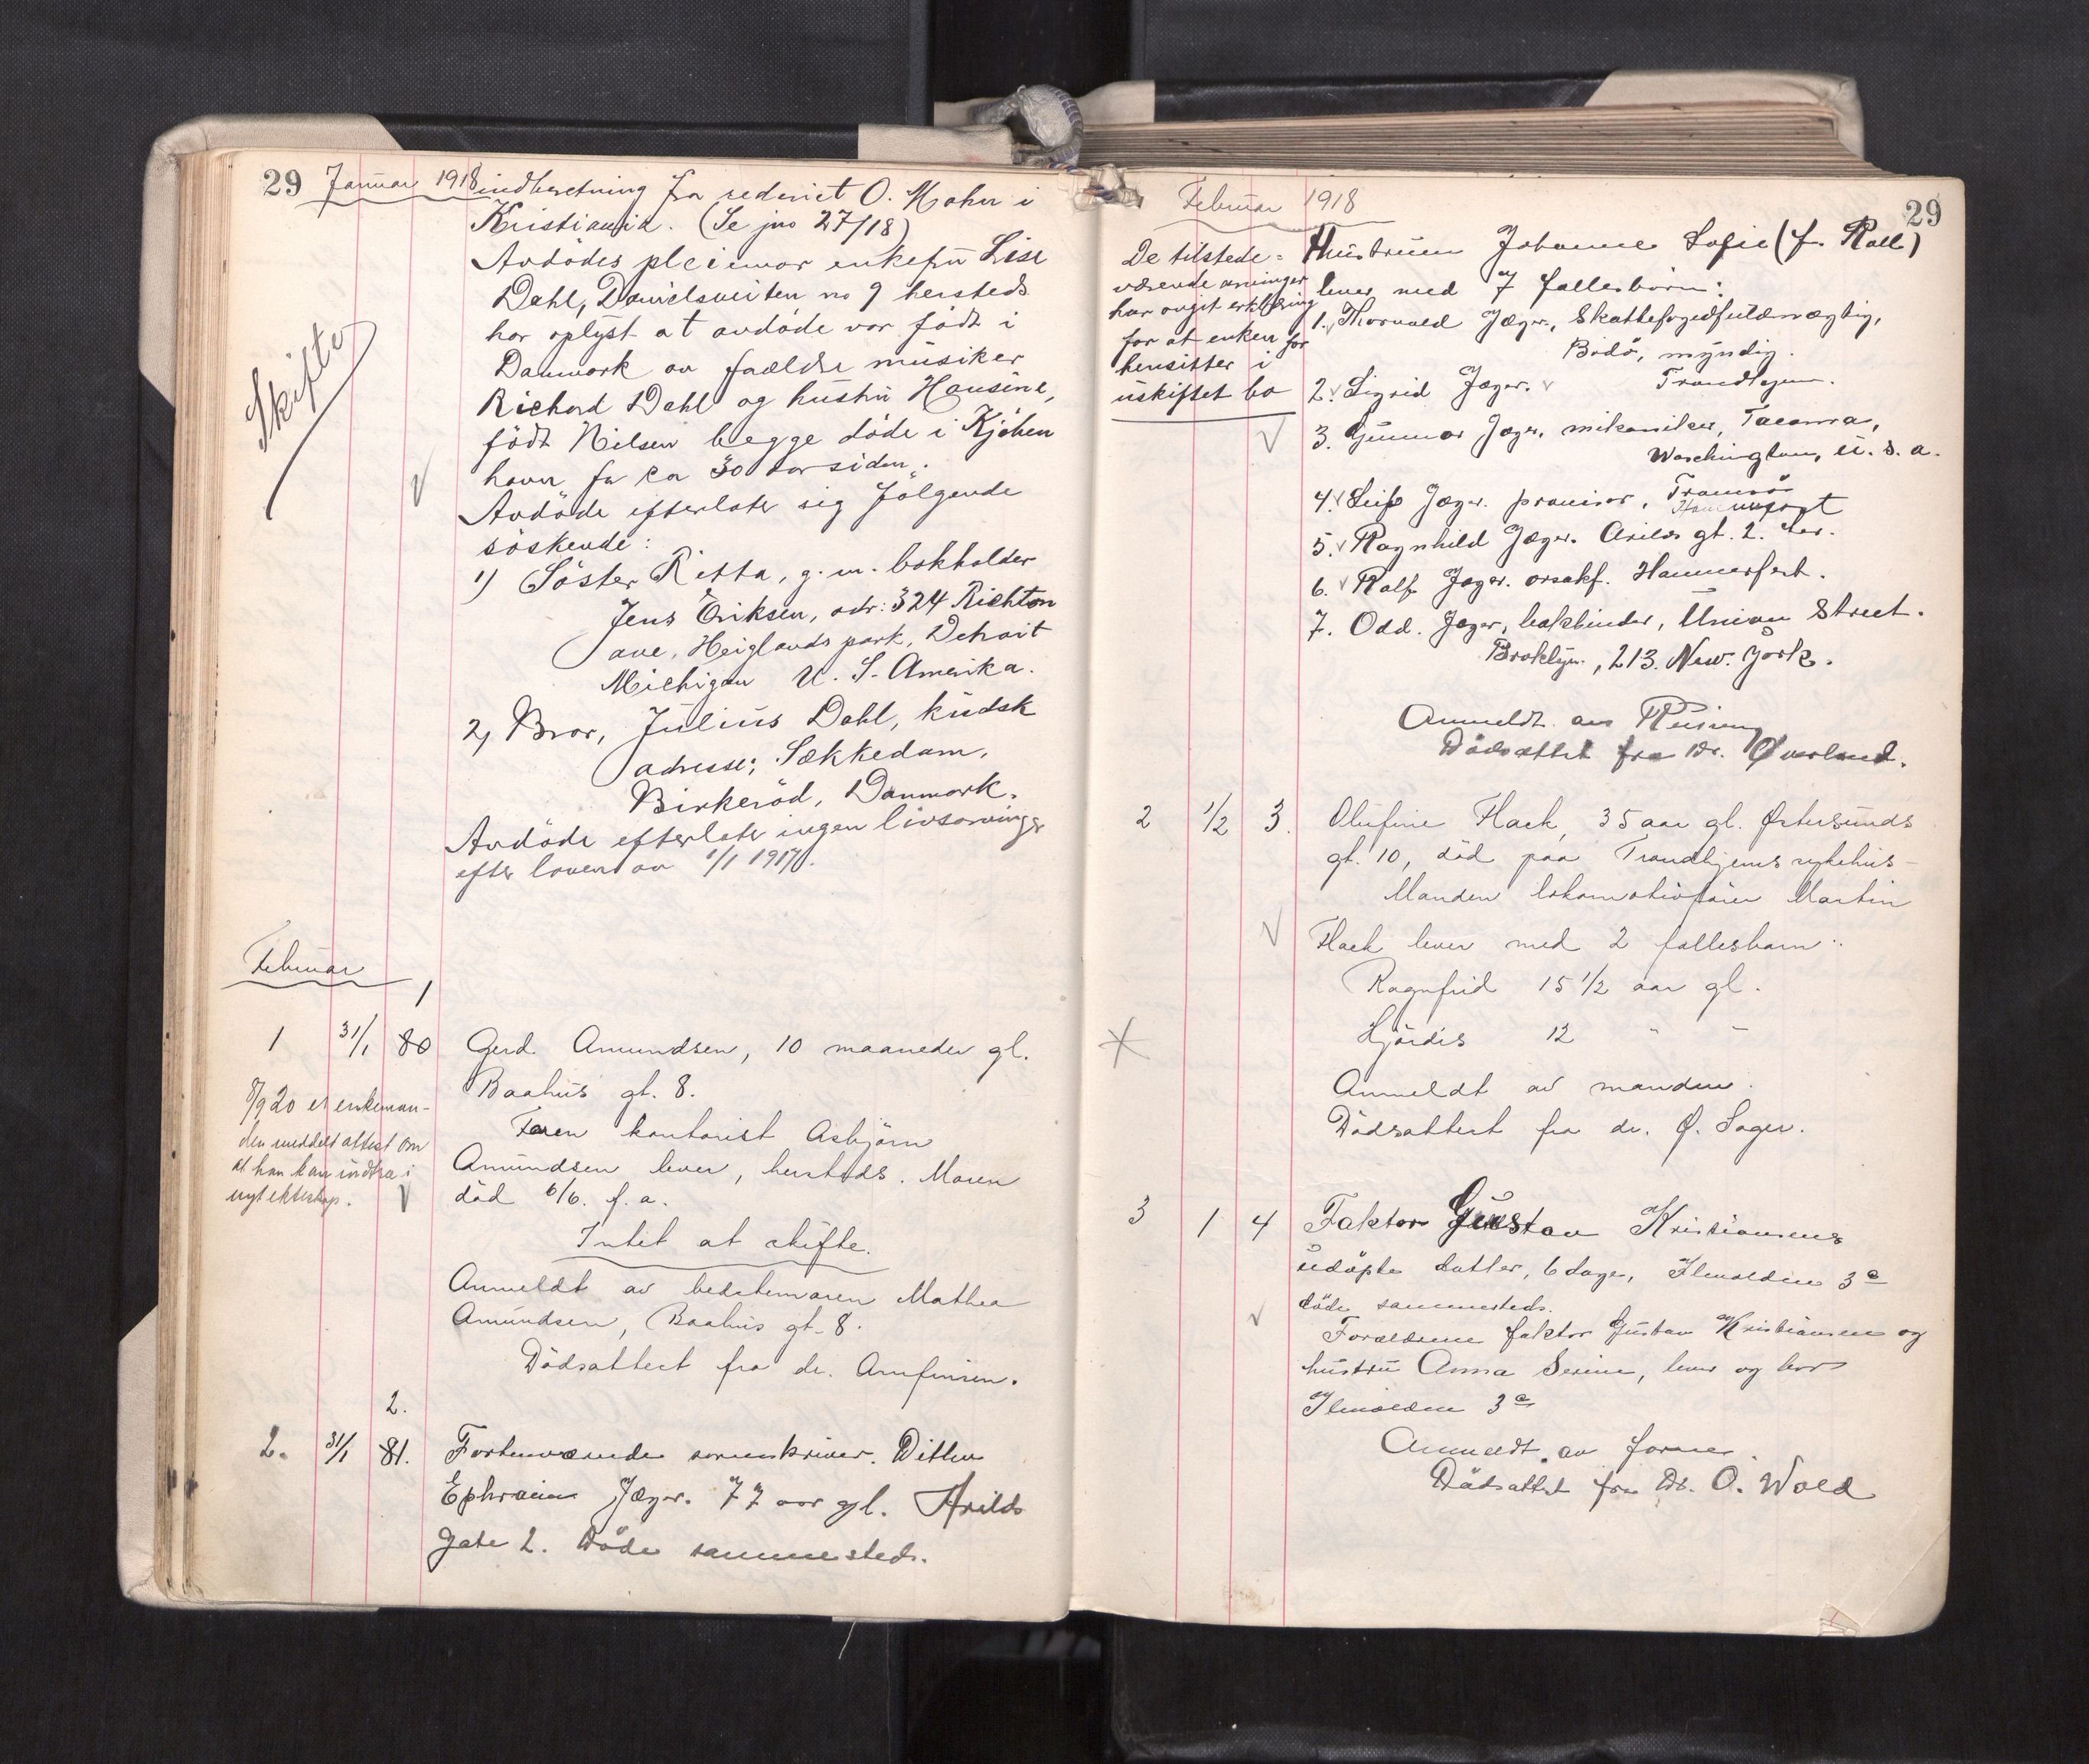 29 Januar 1918 indberetning fra rederiet O. Mohn i
Kristiania. (Se jno 27/18)
Avdödes pleiemor enkefru Lise
Dahl, Danielsveiten no 9 hersteds
har oplyst at avdöde var født i
Danmark av fældre musiker
Richard Dahl og hustru Hansine,
født Nielsen begge döde i Kjöben
havn for ca 30 aar siden.
Skifte
Avdöde efterlater sig fölgende
söskende:
1) Söster Ritta, g. m. bokholder
Jens Eriksen, adr: 324 Richton
ave, Heiglands park, Detroit
Michigan U. S. Amerika.
2, Bror, Julius Dahl, kudsk
adresse; Sækkedam,
Birkeröd, Danmark.
Avdöde efterlater ingen livsarvinger
efter loven av 1/1 1917.
Februar
1
1 31/1 80 Gerd Amundsen, 10 maaneder gl.
Baahus gt. 8.
Faren kontorist Asbjörn
Amundsen lever, hersteds. Moren
död 6/6. f. a.
8/9 20 er enkeman-
den meddelt attest om
at han kan indtræ i
nyt ekteskap.
Intet at skifte.
Anmeldt av bedstemoren Mathea
Amundsen, Baahus gt. 8.
Dödsattest fra dr. Arnfinsen.
2.
2. 31/1 81. Forhenværende sorenskriver. Ditlev
Ephraim Jæger. 77 aar gl. Arilds
gate 2. Döde sammesteds.
Februar 1918 29
De tilstede-
værende arvinger
har avgit erklæring
for at enken for
hensitter i
uskiftet bo
Hustruen Johanne Sofie (f. Roll)
lever med 7 fællesbörn:
1. Thorvald Jæger, Skattefogedfuldmægtig,
Bodö, myndig.
2. Sigrid Jæger. Trondhjem.
3. Gunnar Jæger, mikaniker, Tacoma,
Waschington, U. S. a.
4. Leif Jæger. provisor, Tromsö
5. Ragnhild Jæger. Arilds gt. 2. her.
6. Rolf Jæger. orsakf. Hammerfest.
7. Odd. Jæger, bokbinder, Union Street.
Broklyn, 213. New. York.
Anmeldt av
Dödsattest fra Dr. Øverland.
2 1/2 3. Olufine Flack, 35 aar gl. Østersunds
gt. 10, död paa Trondhjems sykehus-
Manden lokomotivförer Martin
Flack lever med 2 fællesbarn:
Ragnfrid 15 1/2 aar gl.
Hjördis 12 " "
Anmeldt av manden.
Dödsattest fra dr. Ø. Sager.
3 1 4 Faktor Gustav Kristiansens
udöpte datter, 6 dage, Ilevolden 3c
döde sammesteds.
Forældrene faktor Gustav Kristiansen og
hustru Anna Serine, lever og bor
Ilevolden 3c
Anmeldt av faren.
Dödsattest fra Dr. O. Wold